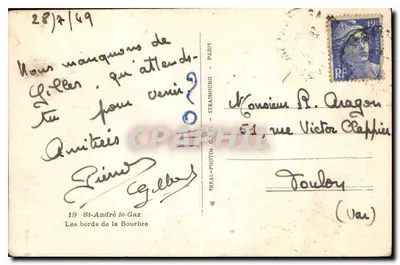 28/7/49
Nous manquons de
Gilles, qu'attends-
tu pour venir ?
Amitiés
Gilbert
18 St-André le-Gaz
Les bords de la Bourbre
STRASBOURG - PARIS
15F
RF
Monsieur R. Aragon
51, rue Victor Clappier
Toulon
(Var)